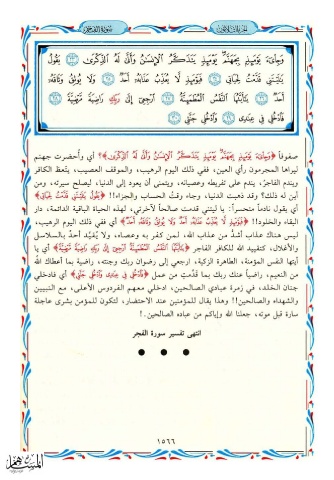 سورة الفجر
الجزء الثلاثون
وَجِاْىٓءَ يَوْمَئِذٍۭ بِجَهَنَّمَ ۚ يَوْمَئِذٍ يَتَذَكَّرُ ٱلْإِنسَٰنُ وَأَنَّىٰ لَهُ ٱلذِّكْرَىٰ ٢٣ يَقُولُ
يَٰلَيْتَنِى قَدَّمْتُ لِحَيَاتِى ٢٤ فَيَوْمَئِذٍ لَّا يُعَذِّبُ عَذَابَهُۥٓ أَحَدٌ ٢٥ وَلَا يُوثِقُ وَثَاقَهُۥٓ
أَحَدٌ ٢٦ يَٰٓأَيَّتُهَا ٱلنَّفْسُ ٱلْمُطْمَئِنَّةُ ٢٧ ٱرْجِعِىٓ إِلَىٰ رَبِّكِ رَاضِيَةً مَّرْضِيَّةً ٢٨
فَٱدْخُلِى فِى عِبَٰدِى ٢٩ وَٱدْخُلِى جَنَّتِى ٣٠
صفوفاً ﴿وَجِاْىٓءَ يَوْمَئِذٍۭ بِجَهَنَّمَ يَوْمَئِذٍ يَتَذَكَّرُ ٱلْإِنسَٰنُ وَأَنَّىٰ لَهُ ٱلذِّكْرَىٰ﴾؟ أي وأُحضرت جهنم
ليراها المجرمون رأي العين، ففي ذلك اليوم الرهيب، والموقف العصيب، يتعظ الكافر
ويندم الفاجر، يندم على تفريطه وعصيانه، ويتمنى أن يعود إلى الدنيا، ليصلح سيرته، ومن
أين له ذلك؟ وقد ذهبت الدنيا، وجاء وقت الحساب والجزاء!! ﴿يَقُولُ يَٰلَيْتَنِى قَدَّمْتُ لِحَيَاتِى﴾
أي يقول نادماً متحسراً: يا ليتني قدمت صالحاً لآخرتي، لهذه الحياة الباقية الدائمة، دار
البقاء والخلود!! ﴿فَيَوْمَئِذٍ لَّا يُعَذِّبُ عَذَابَهُۥٓ أَحَدٌ وَلَا يُوثِقُ وَثَاقَهُۥٓ أَحَدٌ﴾ أي ففي ذلك اليوم الرهيب،
ليس هناك عذاب أشدُّ من عذاب الله، لمن كفر به وعصاه، ولا يُقيِّد أحدٌ بالسلاسل
والأغلال، كتقييد الله للكافر الفاجر ﴿يَٰٓأَيَّتُهَا ٱلنَّفْسُ ٱلْمُطْمَئِنَّةُ ٱرْجِعِىٓ إِلَىٰ رَبِّكِ رَاضِيَةً مَّرْضِيَّةً﴾ أي يا
أيتها النفس المؤمنة، الطاهرة الزكية، ارجعي إلى رضوان ربك وجنته، راضية بما أعطاك الله
من النعيم، راضياً عنك ربك بما قدَّمتِ من عمل ﴿فَٱدْخُلِى فِى عِبَٰدِى وَٱدْخُلِى جَنَّتِى﴾ أي فادخلي
جنان الخلد، في زمرة عبادي الصالحين، ادخلي معهم الفردوس الأعلى، مع النبيين
والشهداء والصالحين!! وهذا يقال للمؤمنين عند الاحتضار، لتكون للمؤمن بشرى عاجلة
سارة قبل موته، جعلنا الله وإياكم من عباده الصالحين.!
انتهى تفسير سورة الفجر
١٥٦٦